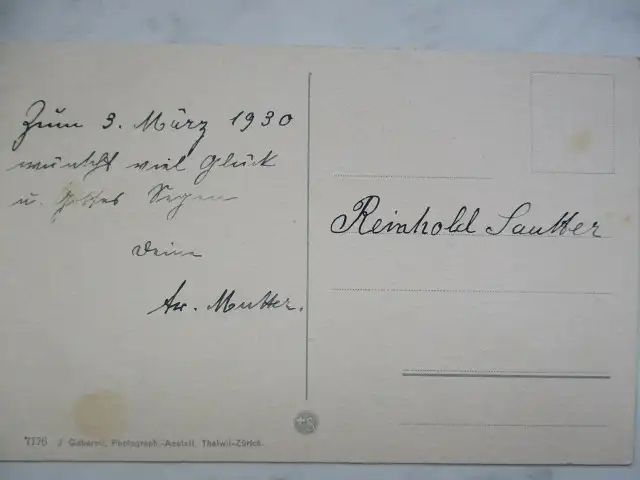 Zum 3. März 1930
wünscht viel Glück
u. Gottes Segen
Deine
Mutter.
Reinhold Sautter
7176 J. Gaberell, Photograph.-Anstalt, Thalwil-Zürich.